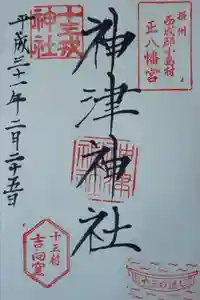 摂州
西成郡小島村
正八幡宮
神津神社
十三戎
神社
平成三十一年二月二十五日
十三村
吉向窯